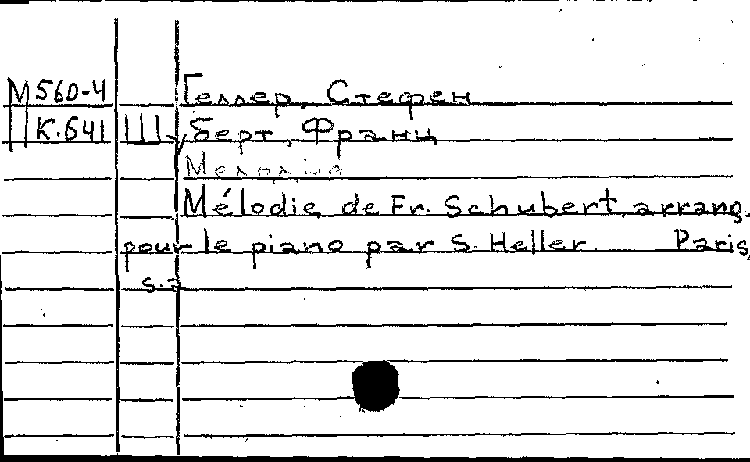 М 560-4 Геллер, Стефен
К.641 Шуберт, Франц
Мелодия
Mélodie de Fr. Schubert, arrang.
pour le piano par S. Heller. Paris,
s.a